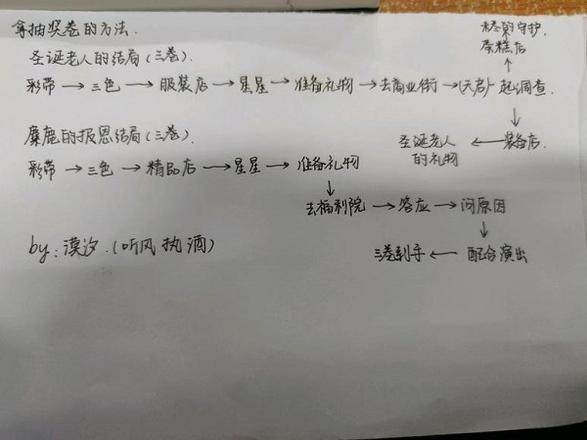 拿抽奖卷的方法.
圣诞老人的结局(三卷).
的守护.
蛋糕店
↑
彩带→三色→服装店→星星→准备礼物→去商业街→(天启)一起调查.
↓
麋鹿的报恩结局(三卷).
圣诞老人的礼物←装备店.
彩带→三色→精品店→星星→准备礼物
↓
去福利院→答应→问原因
↓
by:漠汐.(听风执酒)
三卷到手←配合演出